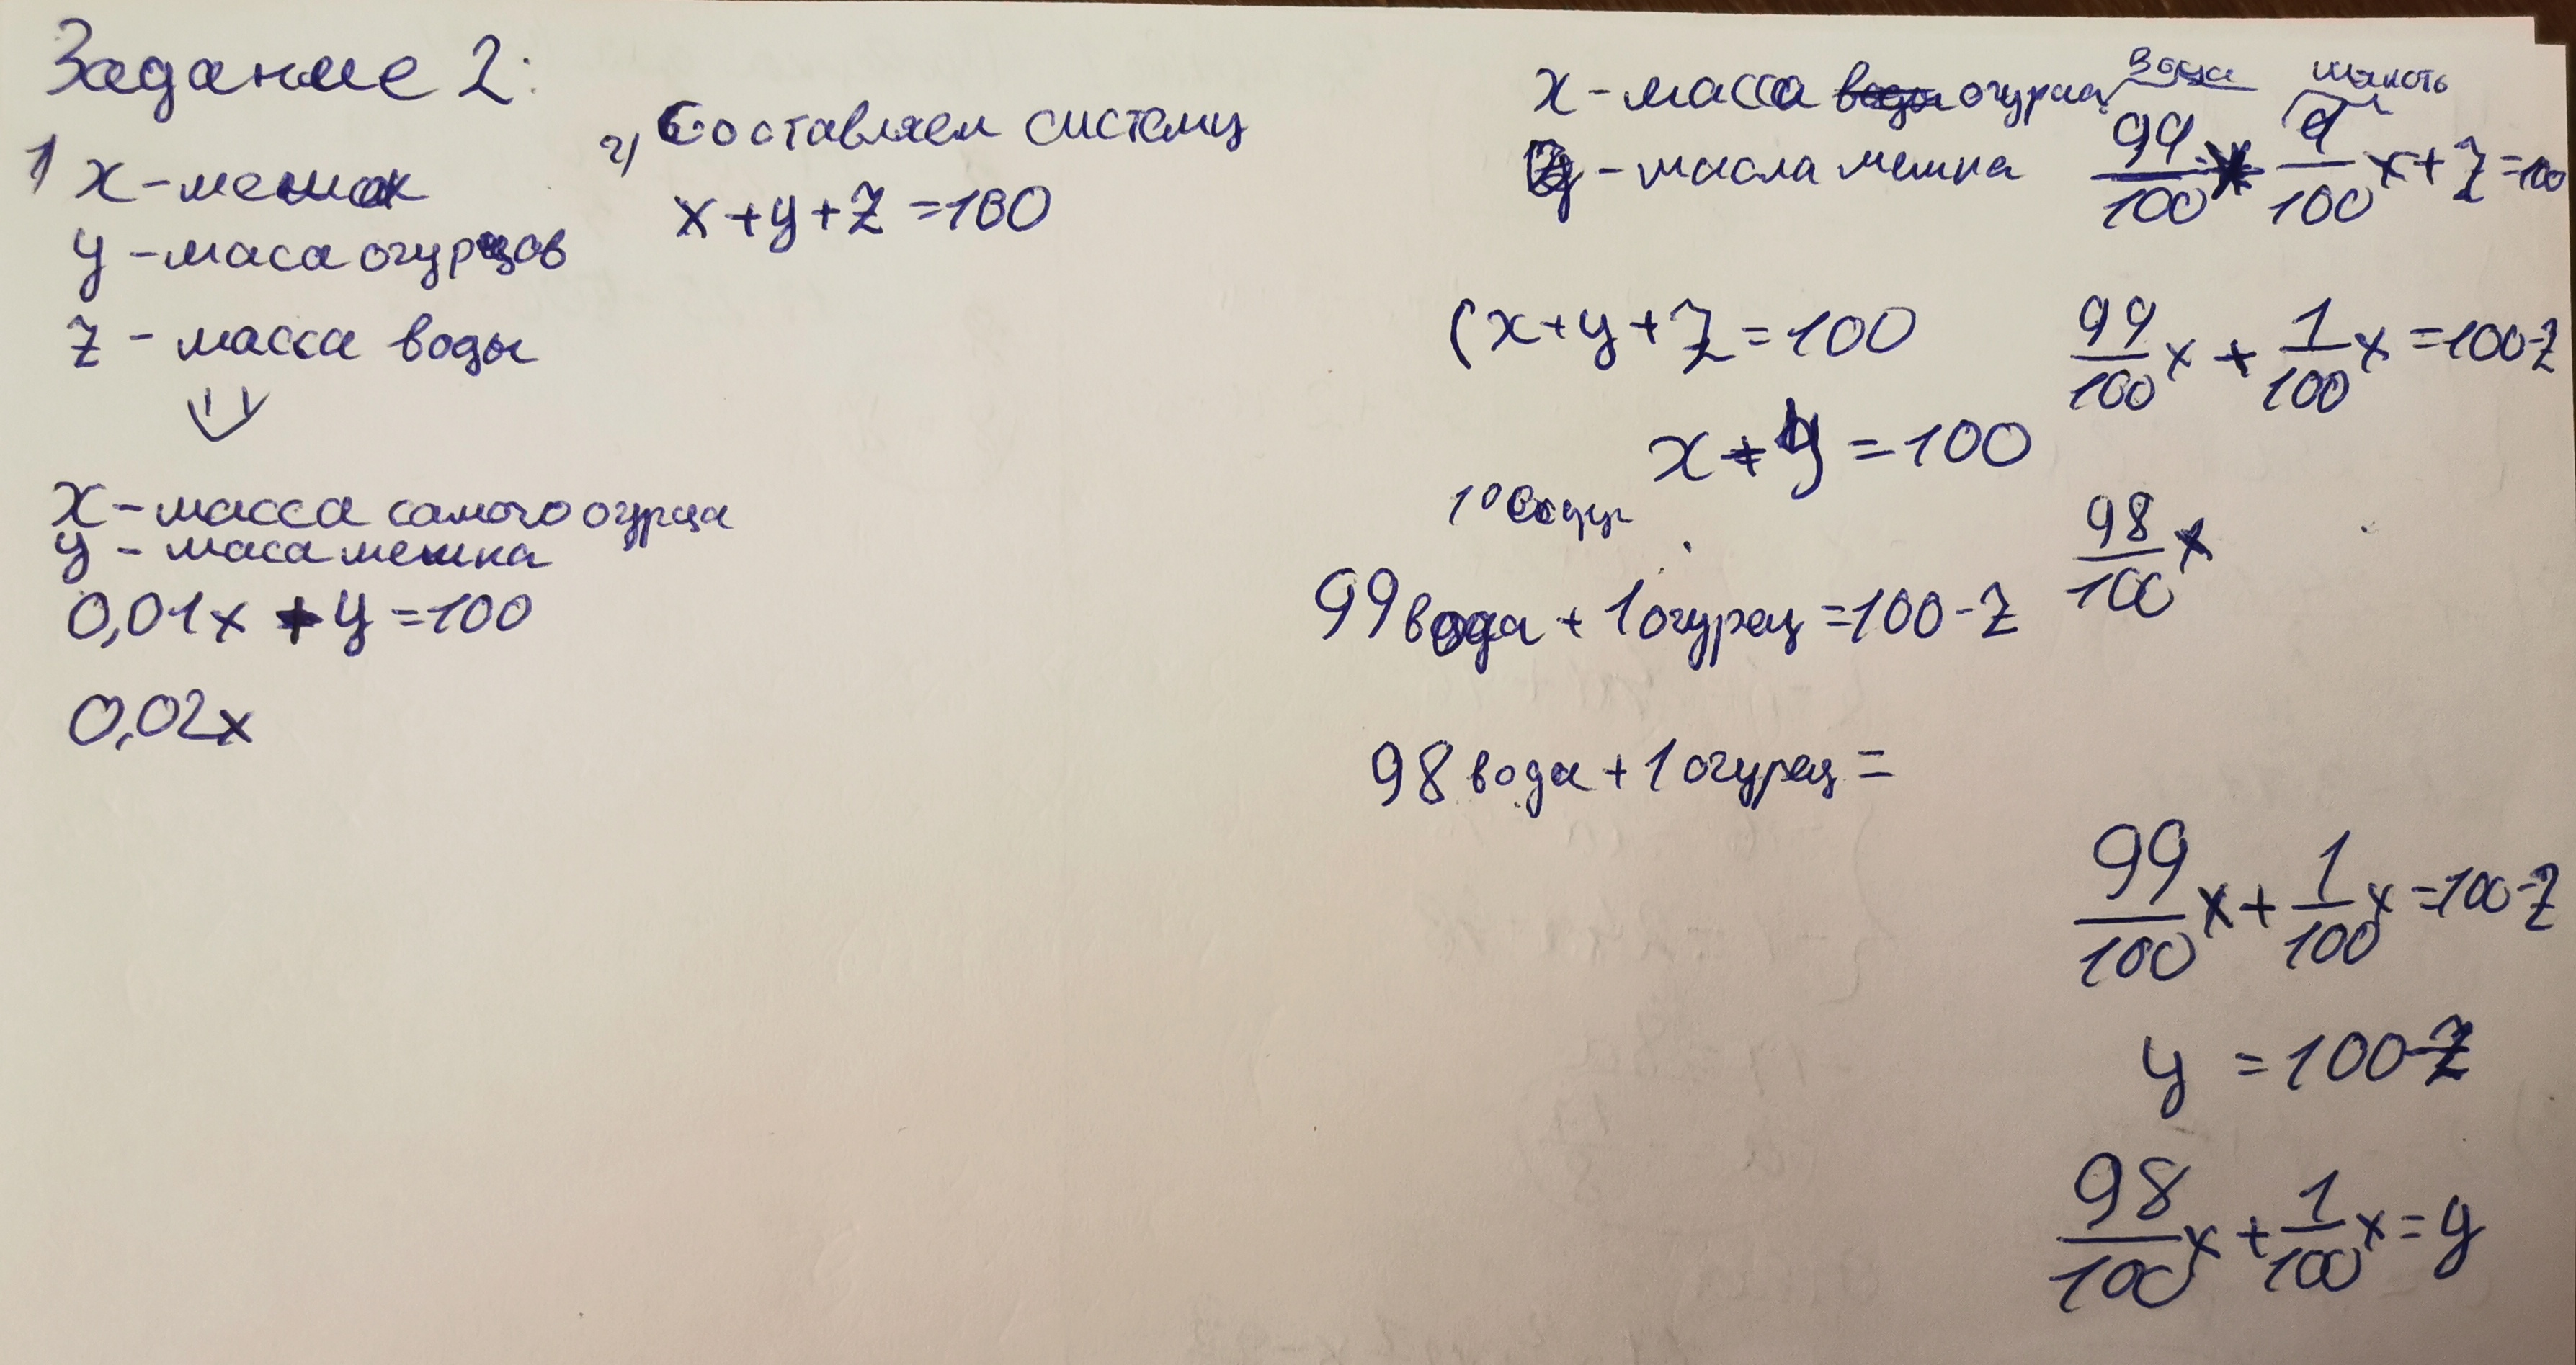 Задание 2:
1 x - мешок
y - маса огурцов
z - масса воды
x - масса самого огурца
y - маса мешка
0,01x + y = 100
0,02x
2) Составляем систему
x + y + z = 100
x - масса воды огурца
y - масла мешка
(x + y + z = 100
x + y = 100
99 вода + 1 огурец = 100 - z
98 вода + 1 огурец =
вода мякоть
99/100 x 1/100 x + z = 100
99/100 x + 1/100 x = 100 - z
98/100 x
99/100 x + 1/100 x = 100 - z
y = 100 - z
98/100 x + 1/100 x = y